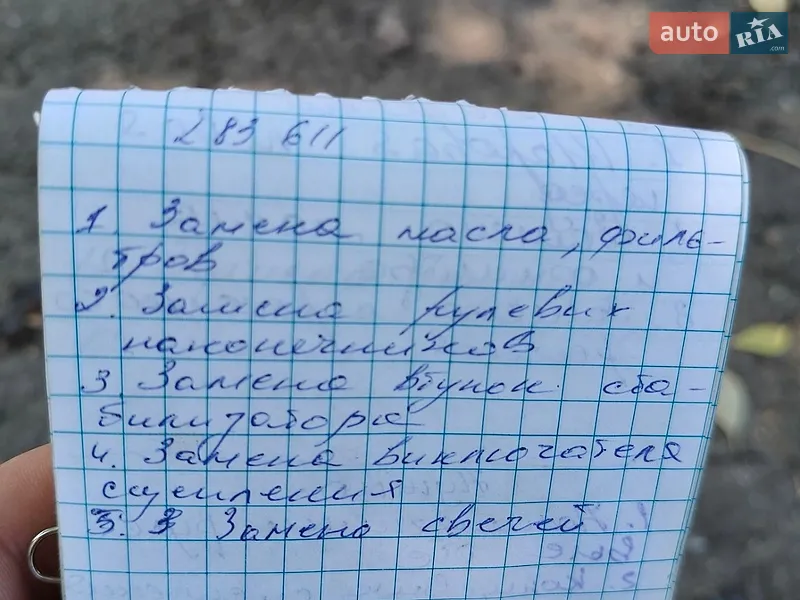 auto RIA .com
283 611
1. Замена масла, филь-
тров
2. Замена рулевих
наконечников
3. Замена втулок ста-
билизатора
4. Замена виключателя
сцепления
5. 3 Замена свечей